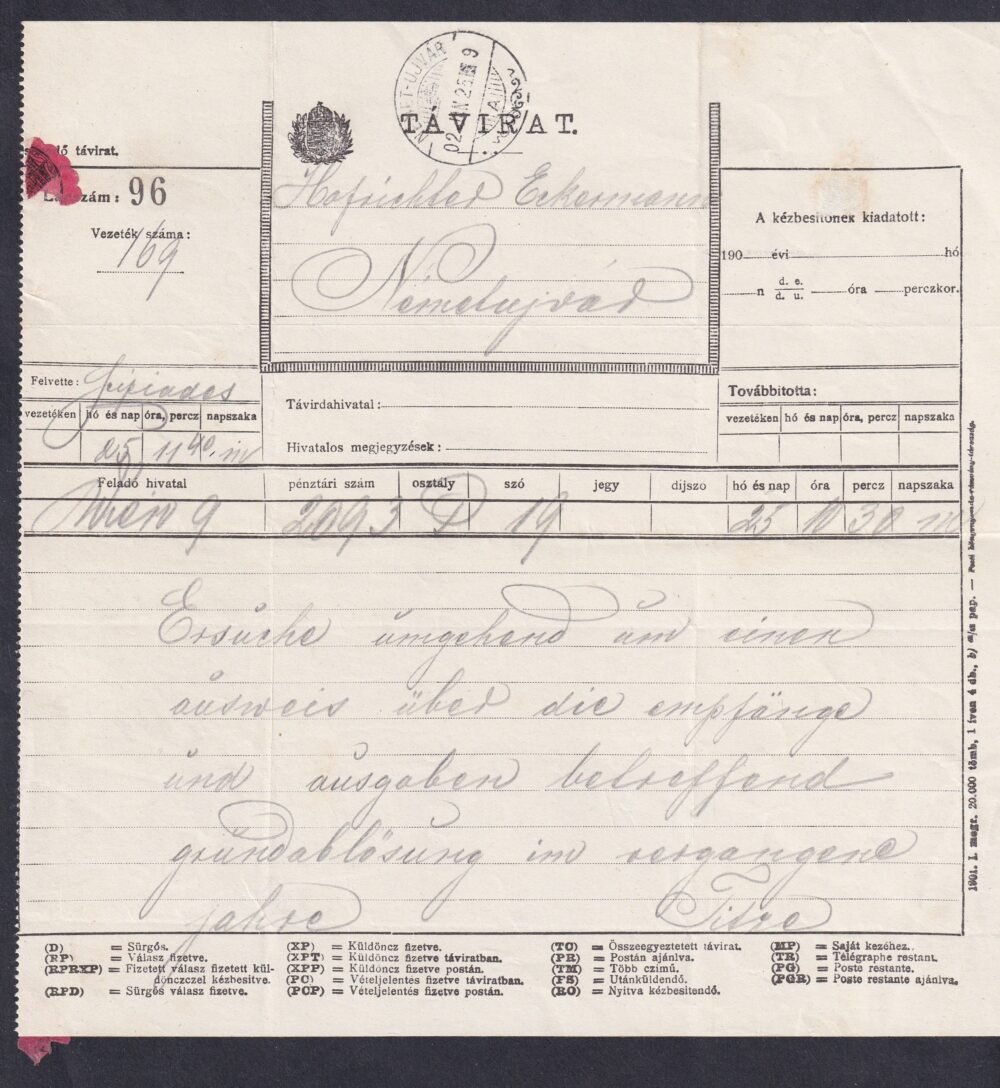 NÉMET-UJVÁR
TÁVIRAT.
dő távirat.
Lapszám: 96
Vezeték száma:
169
Eckermann
Nemetujvár
A kézbesitőnek kiadatott:
190 évi hó
n d. e. d. u. óra perczkor.
Felvette:
vezetéken hó és nap óra, percz napszaka
25 11 40 m
Távirdahivatal:
Hivatalos megjegyzések:
Továbbitotta:
vezetéken hó és nap óra, percz napszaka
Feladó hivatal pénztári szám osztály szó jegy díjszó hó és nap óra percz napszaka
Wien 9 2093 D 19 25 10 30 m
Ersuche umgehend um einen
ausweis über die empfänge
und ausgaben betreffend
grundablösung im vergangene
jahre Titre
(D) = Sürgős.
(RP) = Válasz fizetve.
(RPRXP) = Fizetett válasz fizetett kül-
dönczczel kézbesitve.
(RPD) = Sürgős válasz fizetve.
(XP) = Küldöncz fizetve.
(XPT) = Küldöncz fizetve táviratban.
(XPP) = Küldöncz fizetve postán.
(PC) = Vételjelentés fizetve táviratban.
(PCP) = Vételjelentés fizetve postán.
(TC) = Összeegyeztetett távirat.
(PR) = Postán ajánlva.
(TM) = Több czimű.
(FS) = Utánküldendő.
(RO) = Nyitva kézbesitendő.
(MP) = Saját kezéhez.
(TR) = Télégraphe restant.
(PG) = Poste restante.
(PGR) = Poste restante ajánlva.
1901. I. megr. 20.000 tömb, 1 íven 4 db., b) pap. — Pesti könyvnyomda-részvény-társaság.